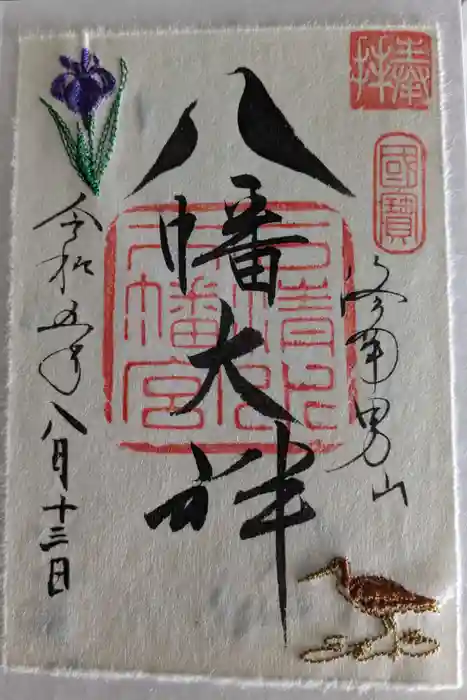 奉拝
國寶
洛南男山
八幡大神
石清水
八幡宮
令和五年八月十三日